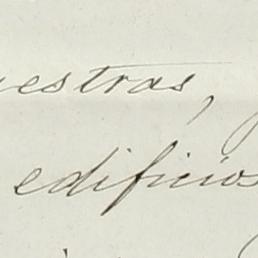 uestras,
edificios